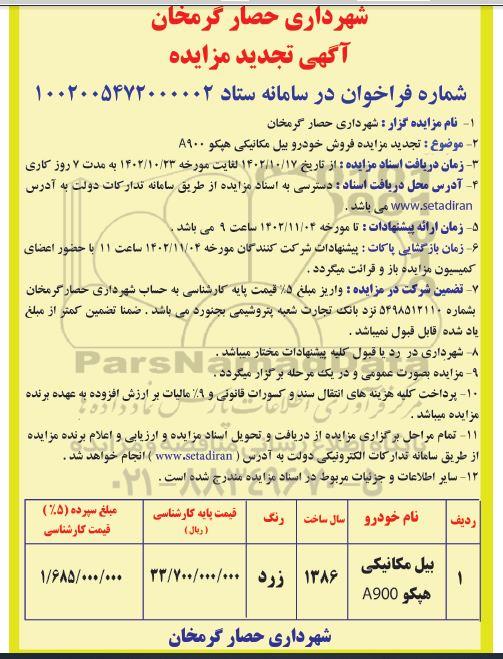 شهرداری حصار گرمخان
آگهی تجدید مزایده
شماره فراخوان در سامانه ستاد ۱۰۰۲۰۰۵۴۷۲۰۰۰۰۰۲
۱- نام مزایده گزار : شهرداری حصار گرمخان
۲- موضوع : تجدید مزایده فروش خودرو بیل مکانیکی هپکو A۹۰۰
۳- زمان دریافت اسناد مزایده : از تاریخ ۱۴۰۲/۱۰/۱۷ لغایت مورخه ۱۴۰۲/۱۰/۲۳ به مدت ۷ روز کاری
۴- آدرس محل دریافت اسناد : دسترسی به اسناد مزایده از طریق سامانه تدارکات دولت به آدرس
www.setadiran می باشد .
۵- زمان ارائه پیشنهادات : تا مورخه ۱۴۰۲/۱۱/۰۴ ساعت ۹ می باشد .
۶- زمان بازگشایی پاکات : پیشنهادات شرکت کنندگان مورخه ۱۴۰۲/۱۱/۰۴ ساعت ۱۱ با حضور اعضای
کمیسیون مزایده باز و قرائت میگردد .
۷- تضمین شرکت در مزایده : واریز مبلغ ۵% قیمت پایه کارشناسی به حساب شهرداری حصارگرمخان
بشماره ۵۴۹۸۵۱۲۱۱۰ نزد بانک تجارت شعبه پتروشیمی بجنورد می باشد . ضمنا تضمین کمتر از مبلغ
یاد شده قابل قبول نمیباشد .
۸- شهرداری در رد یا قبول کلیه پیشنهادات مختار میباشد .
۹- مزایده بصورت عمومی و در یک مرحله برگزار میگردد .
۱۰- پرداخت کلیه هزینه های انتقال سند و کسورات قانونی و ۹% مالیات بر ارزش افزوده به عهده برنده
مزایده میباشد .
۱۱- تمام مراحل برگزاری مزایده از دریافت و تحویل اسناد مزایده و ارزیابی و اعلام برنده مزایده
از طریق سامانه تدارکات الکترونیکی دولت به آدرس ( www.setadiran ) انجام خواهد شد .
۱۲- سایر اطلاعات و جزئیات مربوط در اسناد مزایده مندرج شده است .
ParsNamadData
۰۲۱-۸۸۳۴۹۶۷۰-۵
ردیف نام خودرو سال ساخت رنگ قیمت پایه کارشناسی (ریال) مبلغ سپرده (۵%) قیمت کارشناسی
۱ بیل مکانیکی هپکو A900 ۱۳۸۶ زرد ۳۳/۷۰۰/۰۰۰/۰۰۰ ۱/۶۸۵/۰۰۰/۰۰۰
شهرداری حصار گرمخان